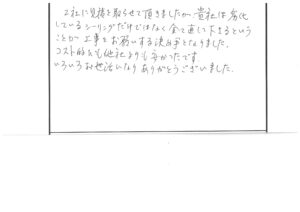 2社に見積を取らせて頂きましたが、貴社は劣化
しているシーリングだけではなく全て直して下さるという
ことが工事をお願いする決め手となりました。
コスト的にも他社よりも安かったです
いろいろお世話になりありがとうございました。